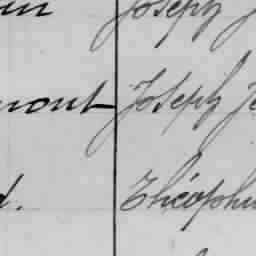 Joseph
mont Joseph Je
d. Théophi